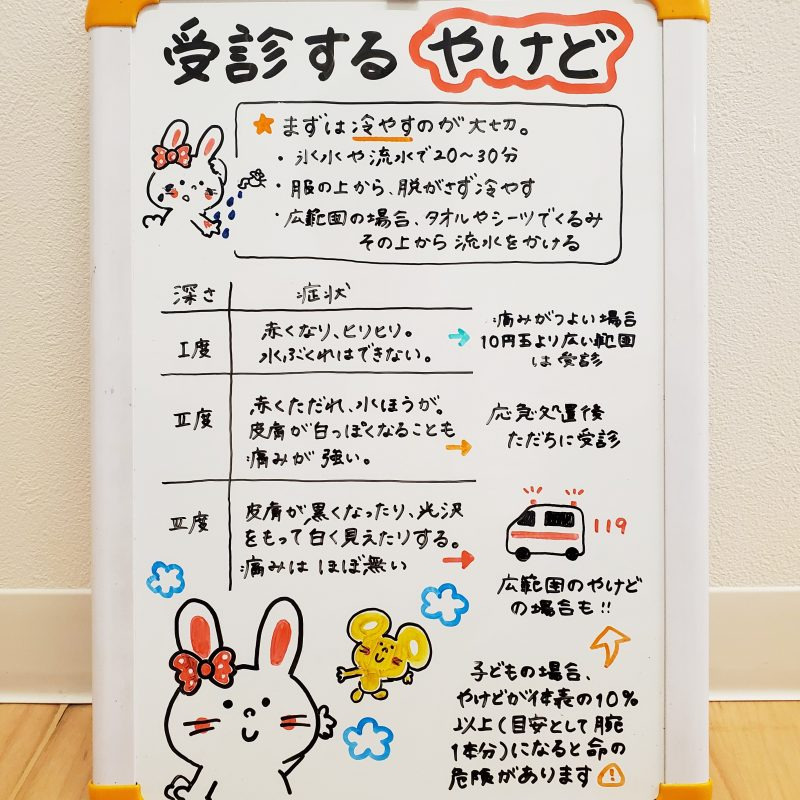 受診する やけど
★まずは冷やすのが大切。
・氷水や流水で20〜30分
・服の上から、脱がさず冷やす
・広範囲の場合、タオルやシーツでくるみ
その上から流水をかける
深さ 症状
I度
赤くなり、ヒリヒリ。
水ぶくれはできない。
→ 痛みがつよい場合
10円玉より広い範囲
は受診
II度
赤くただれ、水ほうが。
皮膚が白っぽくなることも
痛みが強い。
→ 応急処置後
ただちに受診
III度
皮膚が黒くなったり、光沢
をもって白く見えたりする。
痛みはほぼ無い
→ 119
広範囲のやけど
の場合も!!
子どもの場合、
やけどが体表の10%
以上(目安として腕
1本分)になると命の
危険があります⚠